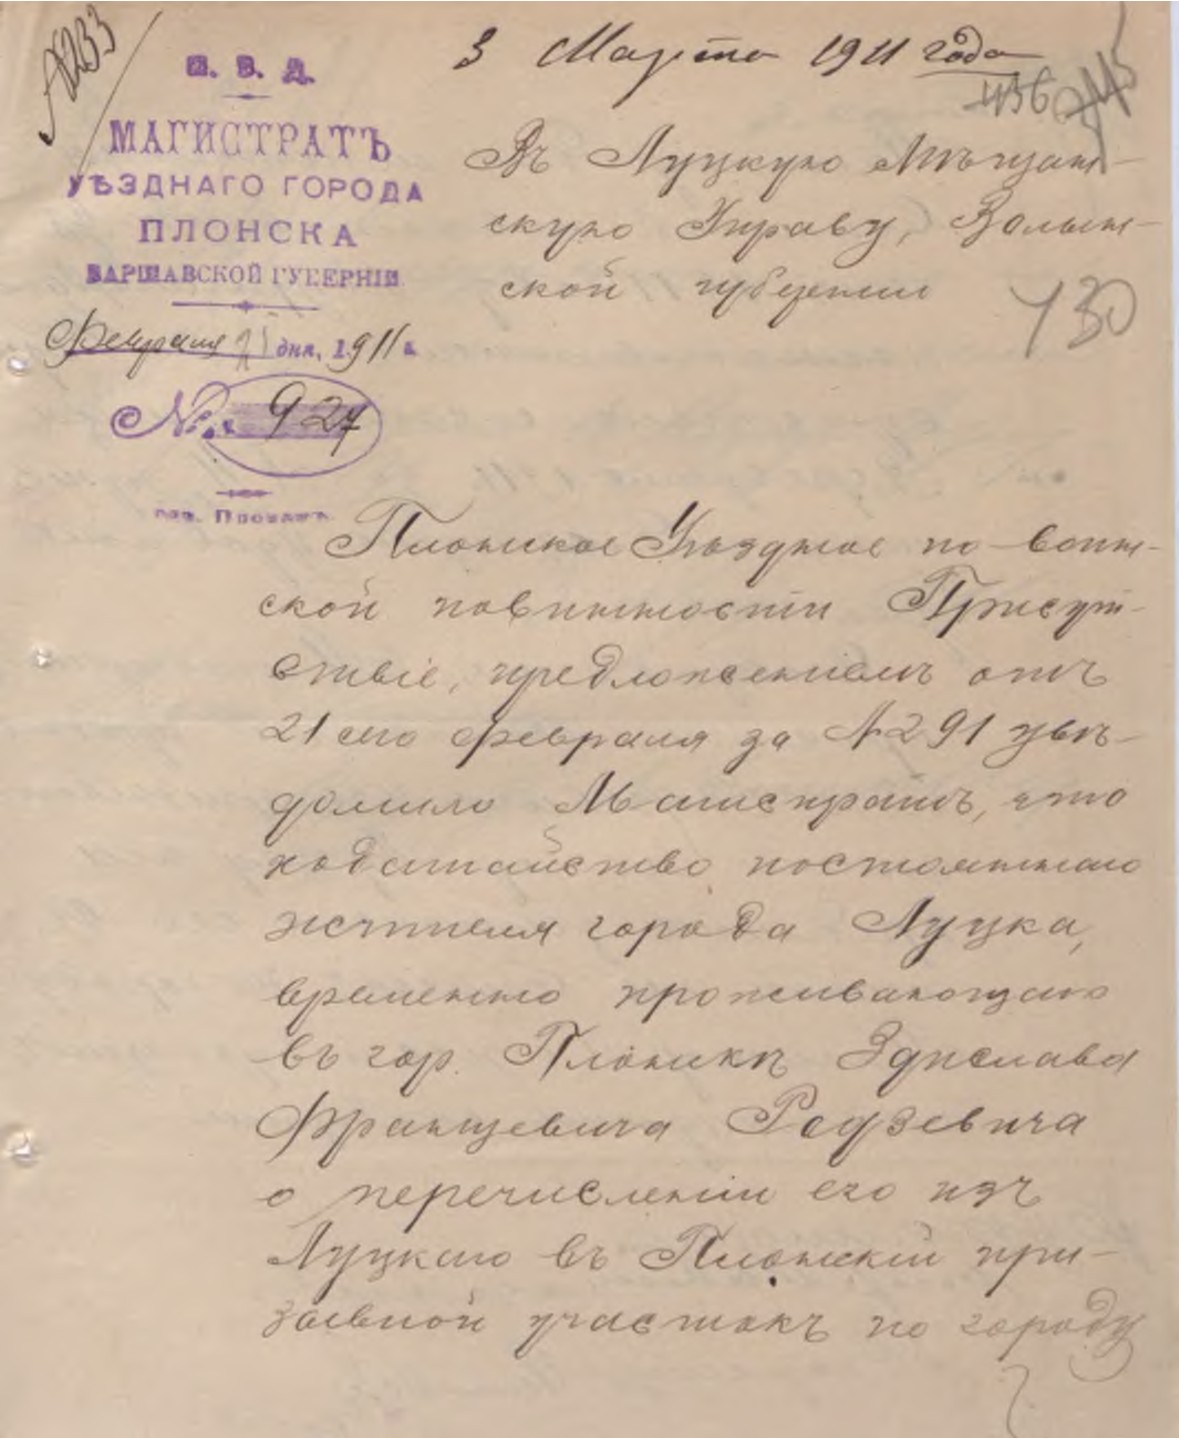 № 233
М. В. Д.
МАГИСТРАТЪ
УѢЗДНАГО ГОРОДА
ПЛОНСКА
ВАРШАВСКОЙ ГУБЕРНІИ
Февраля 21 дня, 1911 г.
№ 927
гор. Плонскъ.
3 Марта 1911 года
436
Въ Луцкую Мѣщан-
скую Управу, Волын-
ской губерніи
430
Плонское Уѣздное по воин-
ской повинности Присут-
ствіе, предложеніемъ отъ
21 сего февраля за № 291 увѣ-
домило Магистратъ, что
ходатайство постояннаго
жителя города Луцка,
временно проживающаго
въ гор. Плонскѣ Здислава
Францевича Родзевича
о перечисленіи его изъ
Луцкаго въ Плонскій при-
зывной участокъ по городу